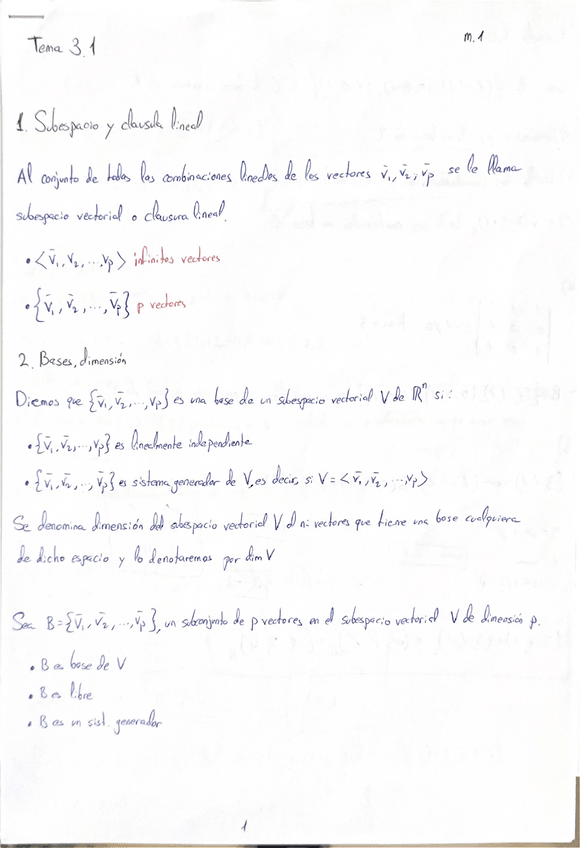 Tema 3.1
m.1
1. Subespacio y clausula lineal
Al conjunto de todas las combinaciones lineales de los vectores v̄₁, v̄₂, v̄p se le llama
subespacio vectorial o clausura lineal.
• <v̄₁, v₂, ..., vp> infinitos vectores
• {v̄₁, v̄₂, ..., v̄p} p vectores
2. Bases, dimensión
Diremos que {v̄₁, v̄₂, ..., vp} es una base de un subespacio vectorial V de ℝⁿ si:
• {v̄₁, v̄₂, ..., vp} es linealmente independiente
• {v̄₁, v̄₂, ..., v̄p} es sistema generador de V, es decir, si V = <v̄₁, v̄₂, ..., vp>
Se denomina dimensión del subespacio vectorial V al nº vectores que tiene una base cualquiera
de dicho espacio y lo denotaremos por dim V
Sea B = {v̄₁, v̄₂, ..., v̄p}, un subconjunto de p vectores en el subespacio vectorial V de dimensión p.
• B es base de V
• B es libre
• B es un sist. generador
1